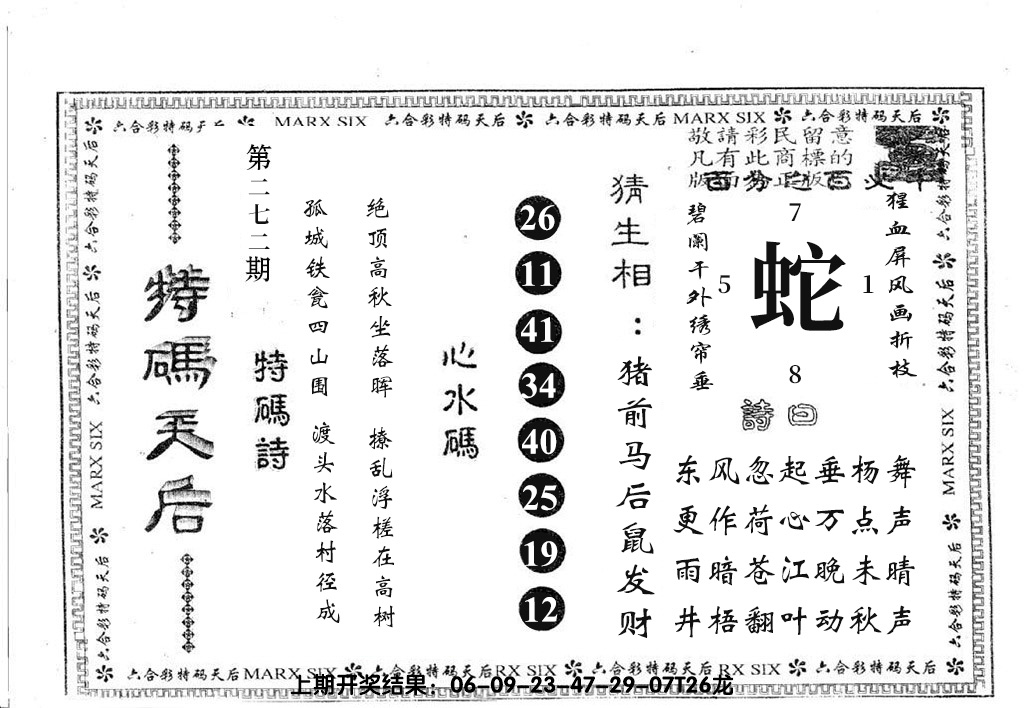 六合彩特码天后 MARX SIX 六合彩特码天后 六合彩特码天后 MARX SIX 六合彩特码天后
敬請彩民留意
凡有此商標的
版面为正版
特碼天后
第二七二期
特碼詩
孤城铁瓮四山围 渡头水落村径成
绝顶高秋坐落晖 撩乱浮槎在高树
心水碼
26
11
41
34
40
25
19
12
猜生相：猪前马后鼠发财
碧阑干外绣帘垂
猩血屏风画折枝
7
5
蛇
1
8
詩曰
东风忽起垂杨舞
更作荷心万点声
雨暗苍江晚未晴
井梧翻叶动秋声
六合彩特码天后 MARX SIX 六合彩特码天后
六合彩特码天后 MARX SIX 六合彩特码天后
六合彩特码天后MARX SIX 六合彩特码天后RX SIX 六合彩特码天后RX SIX 六合彩特码天后
上期开奖结果：06-09-23-47-29-07T26龙